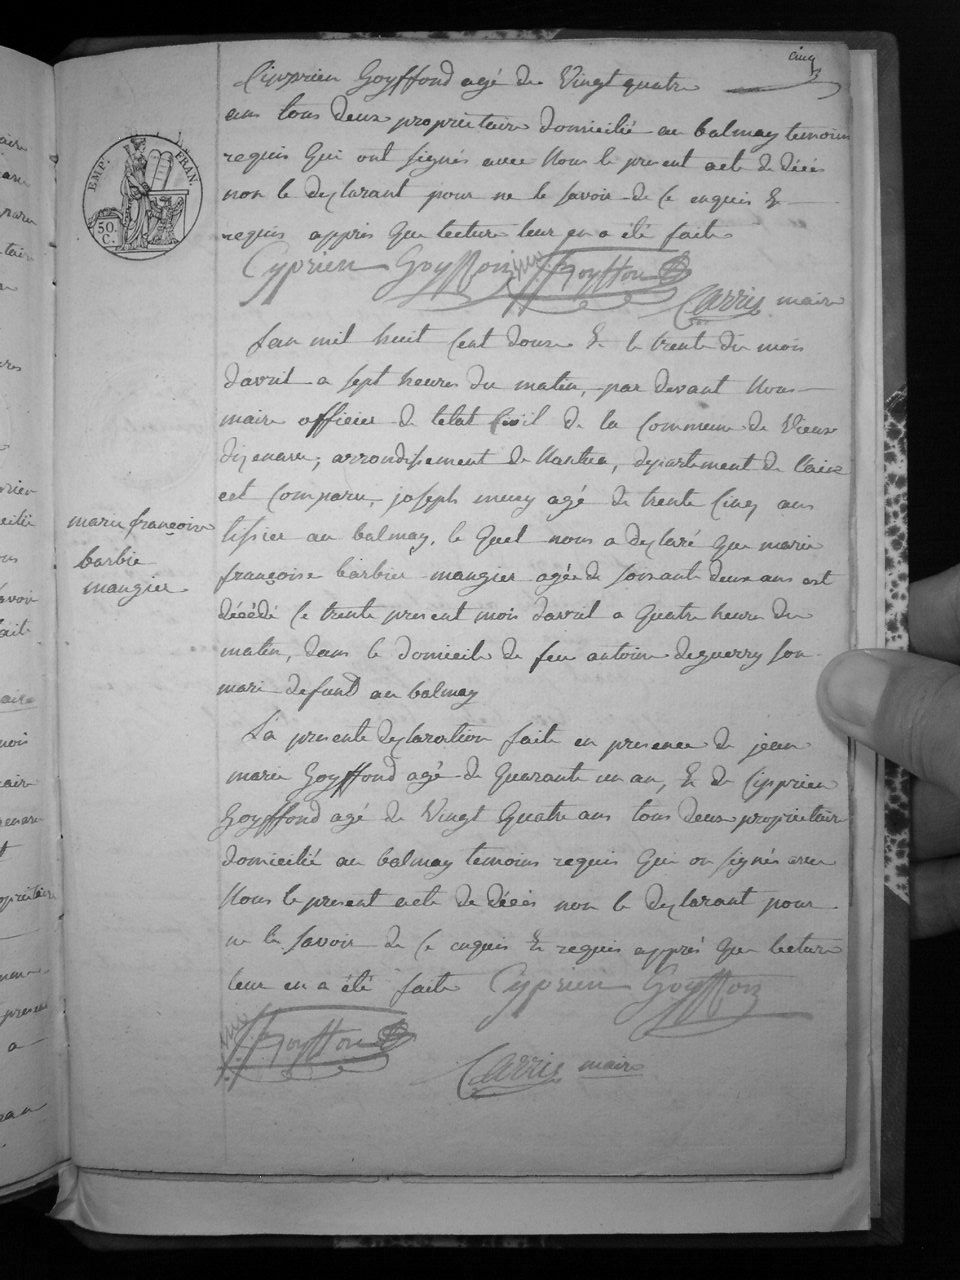 cinq
Cipprien Goyffond agé de Vingt quatre
ans tous deux propriétaire domicilié au balmay temoins
requis Qui ont signés avec Nous le present acte de décés
non le declarant pour ne le savoir de ce enquis &
requis apprés Que lecture leur en a été faite
Cyprien Goyffon Goyffon
Carrie maire
EMP. FRAN.
50. C.
Lan mil huit Cent douze & le trente du mois
davril a sept heures du matin, par devant Nous
maire officier de letat Civil de la Commune de Vieux
dizenave, arrondissement de Nantua, departement de l'ain
est Comparu, joseph meny agé de trente Cinq ans
tissier au balmay, le Quel nous a declaré Que marie
françoise barbier mangier agée de soixante deux ans est
décédé le trente present mois davril a Quatre heure du
matin, dans le domicile de feu antoine deguerry son
mari defund au balmay
marie françoise
barbie
mangier
La presente declaration faite en presence de jean
marie Goyffond agé de Quarante un an, & de Cipprien
Goyffond agé de Vingt Quatre ans tous deux propriétaire
domicilié au balmay temoins requis Qui on signés avec
Nous le present acte de décés non le declarant pour
ne le savoir de ce enquis & requis apprés Que lecture
leur en a été faite Cyprien Goyffon
Goyffon
Carrie maire